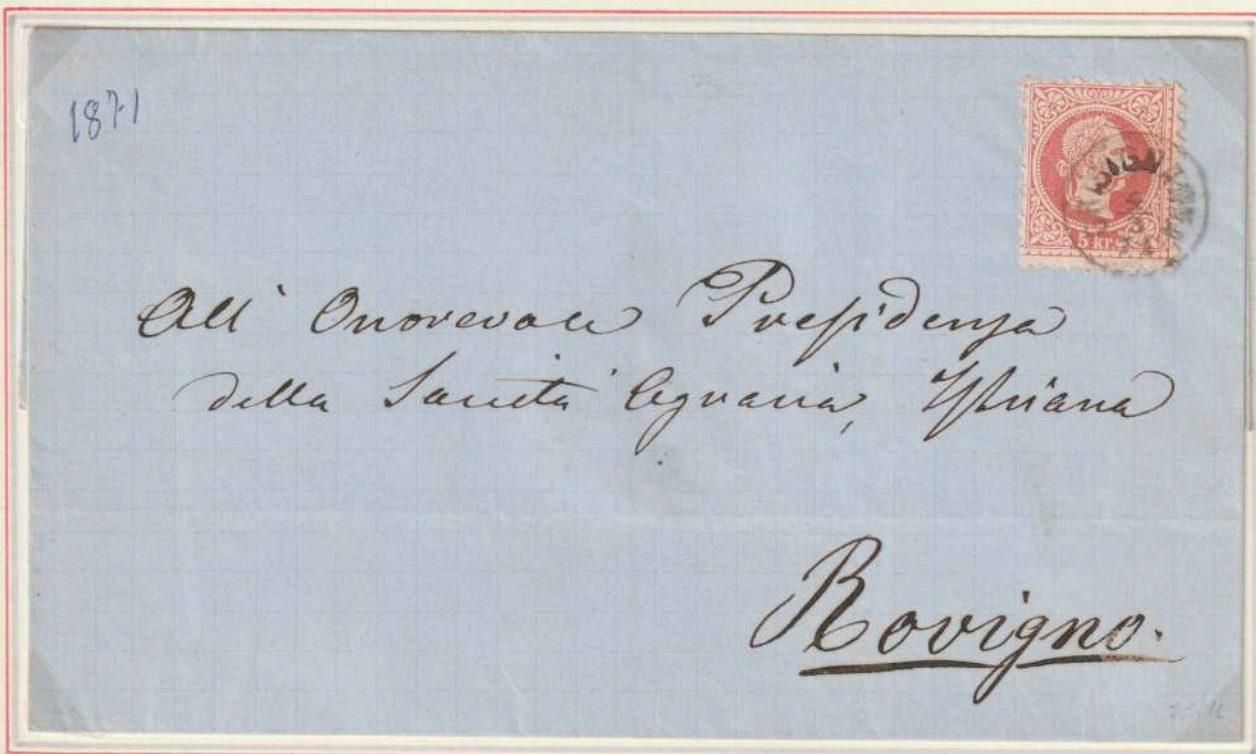 1871
5 kr.
All' Onorevole Presidenza
della Società Agraria Istriana
Rovigno.